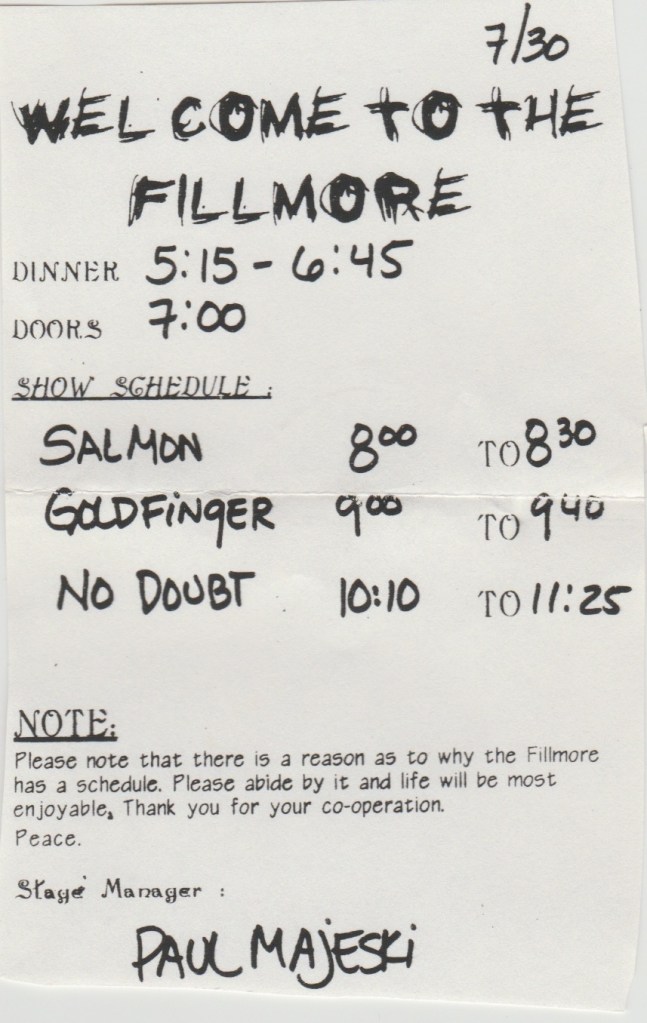 7/30
WELCOME TO THE
FILLMORE
DINNER 5:15 - 6:45
DOORS 7:00
SHOW SCHEDULE:
SALMON 8⁰⁰ TO 8³⁰
GOLDFINGER 9⁰⁰ TO 9⁴⁰
NO DOUBT 10:10 TO 11:25
NOTE:
Please note that there is a reason as to why the Fillmore
has a schedule. Please abide by it and life will be most
enjoyable. Thank you for your co-operation.
Peace.
Stage Manager :
PAUL MAJESKI